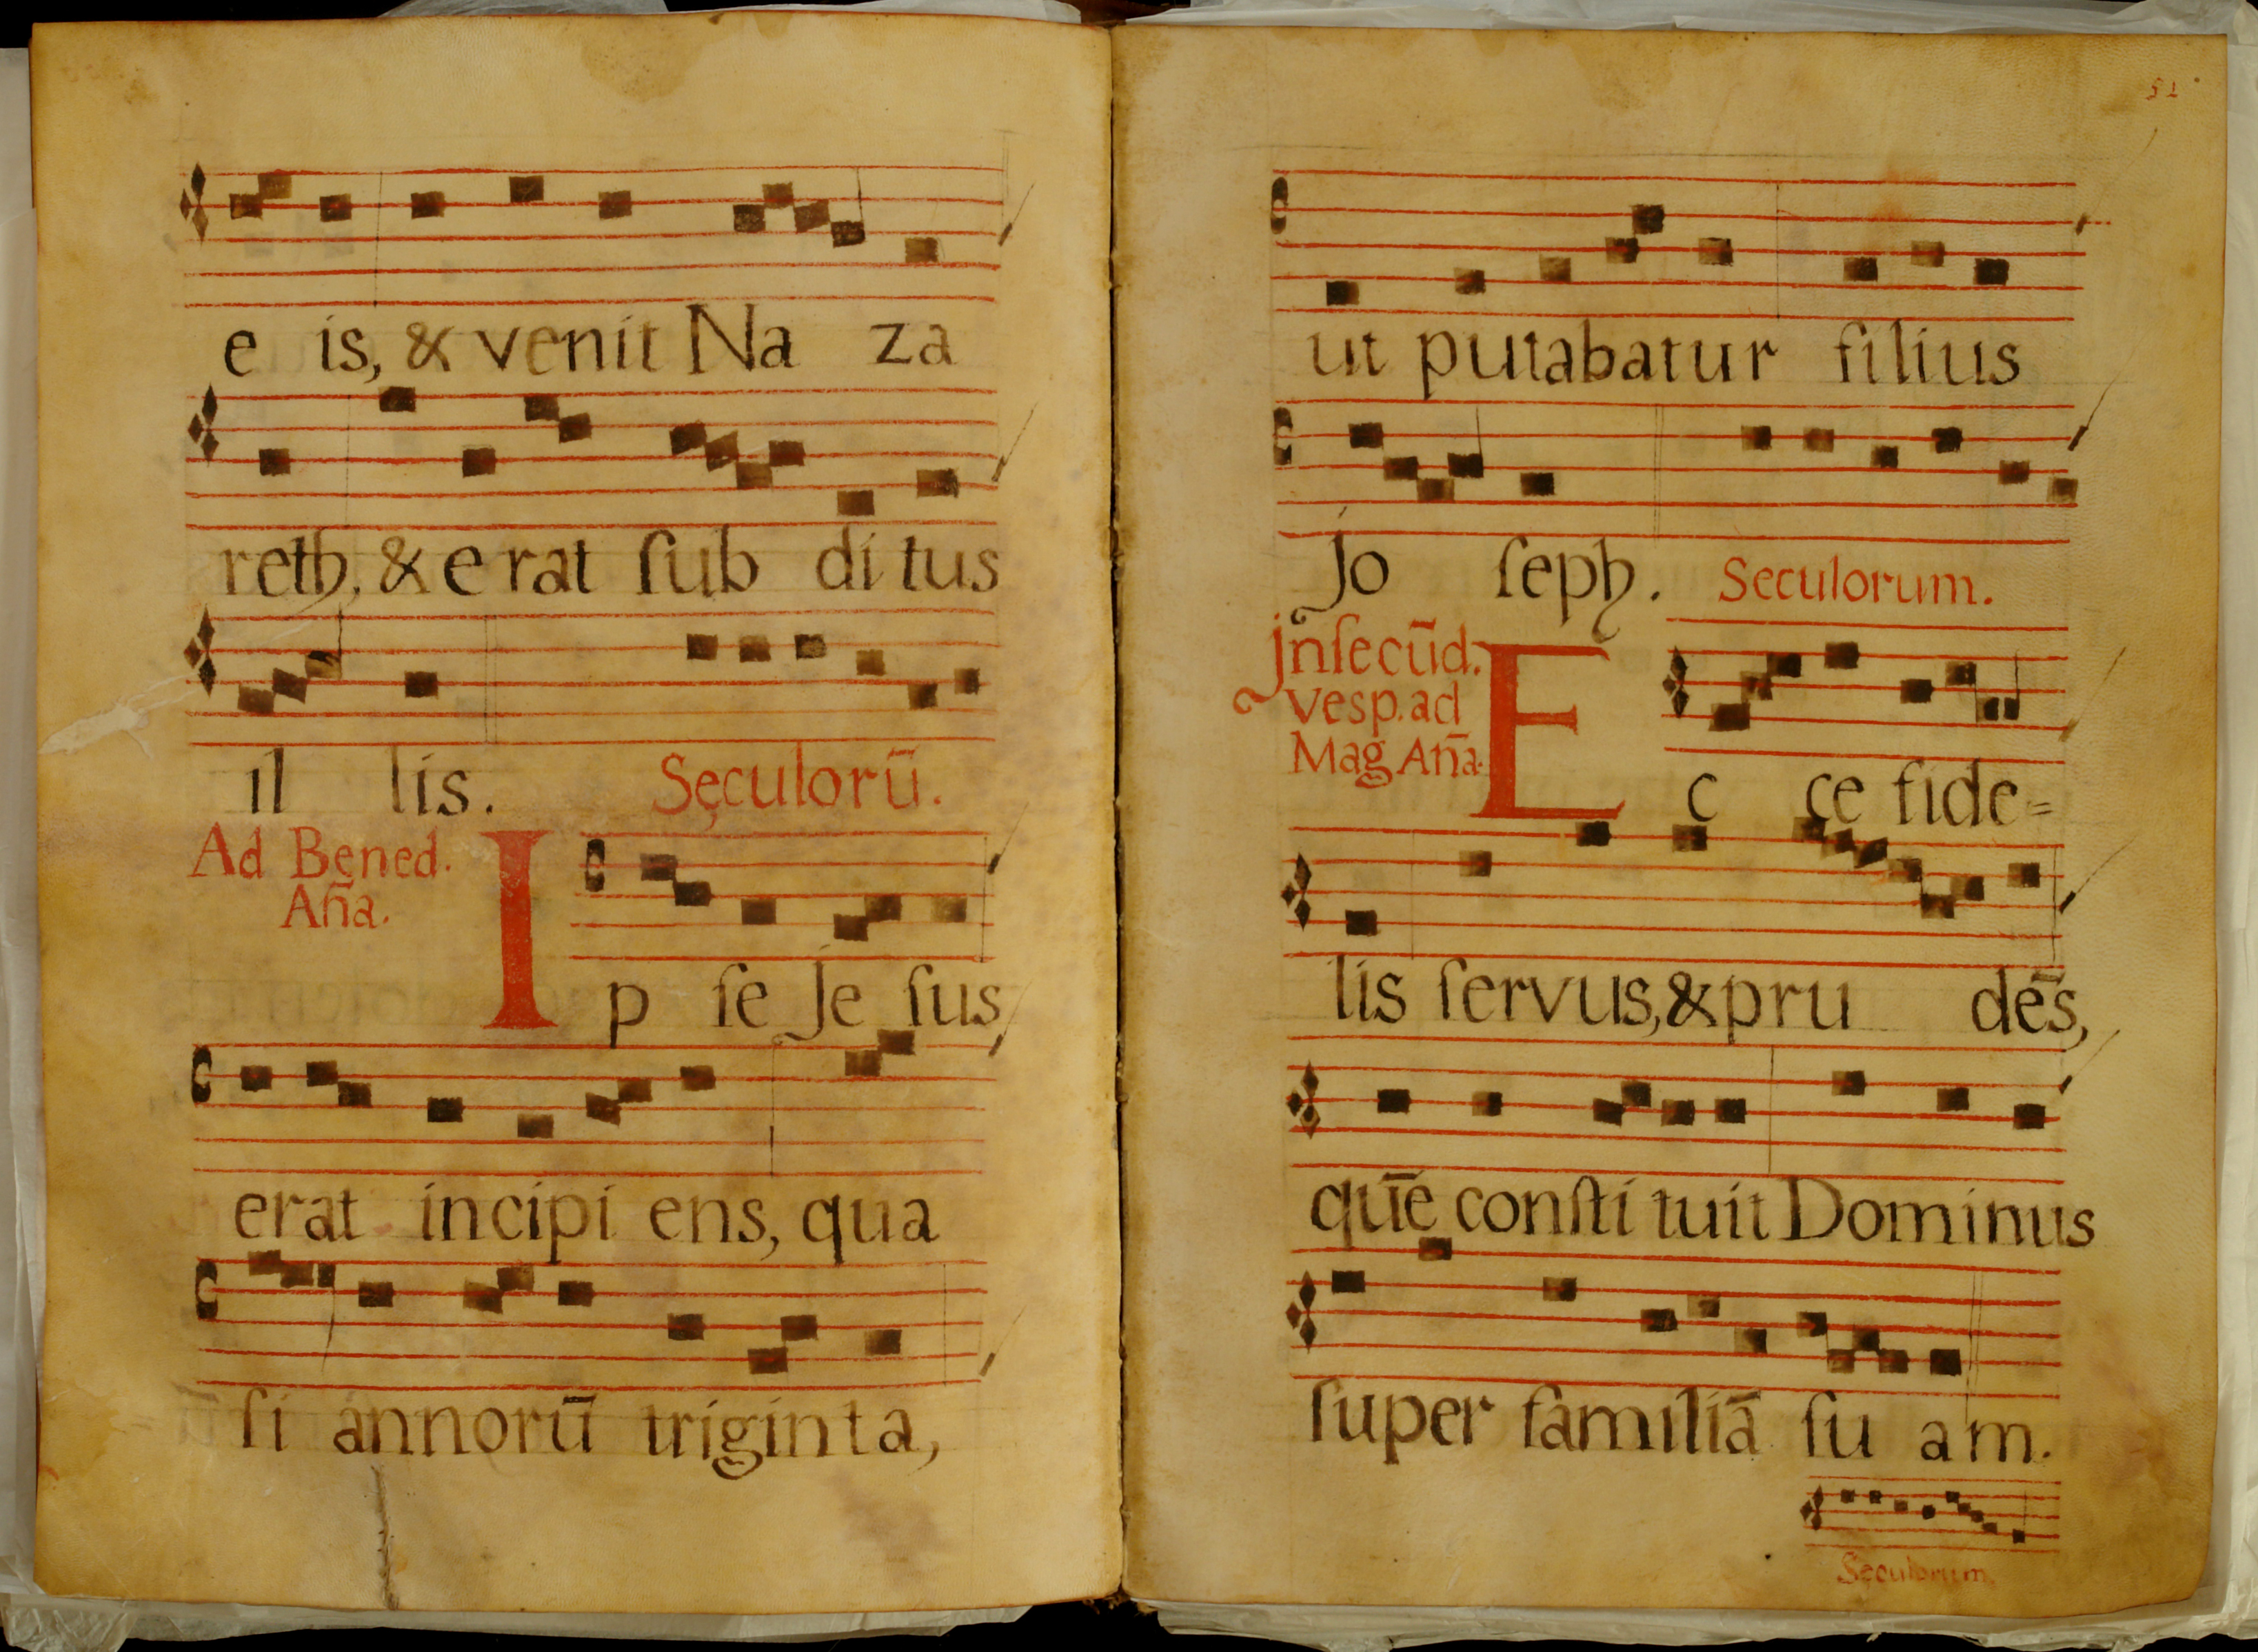 e is, & venit Na za
reth, & e rat ſub di tus
il lis. Sęculorū.
Ad Bened.
Aña.
I p ſe Je ſus
erat incipi ens, qua
ſi annorū triginta,
51
ut putabatur filius
Jo ſeph. Seculorum.
Jnſecūd.
Vesp. ad
Mag Aña.
E c ce fide=
lis ſervus, & pru dēs,
quē conſti tuit Dominus
ſuper familiā ſu am.
Seculorum.